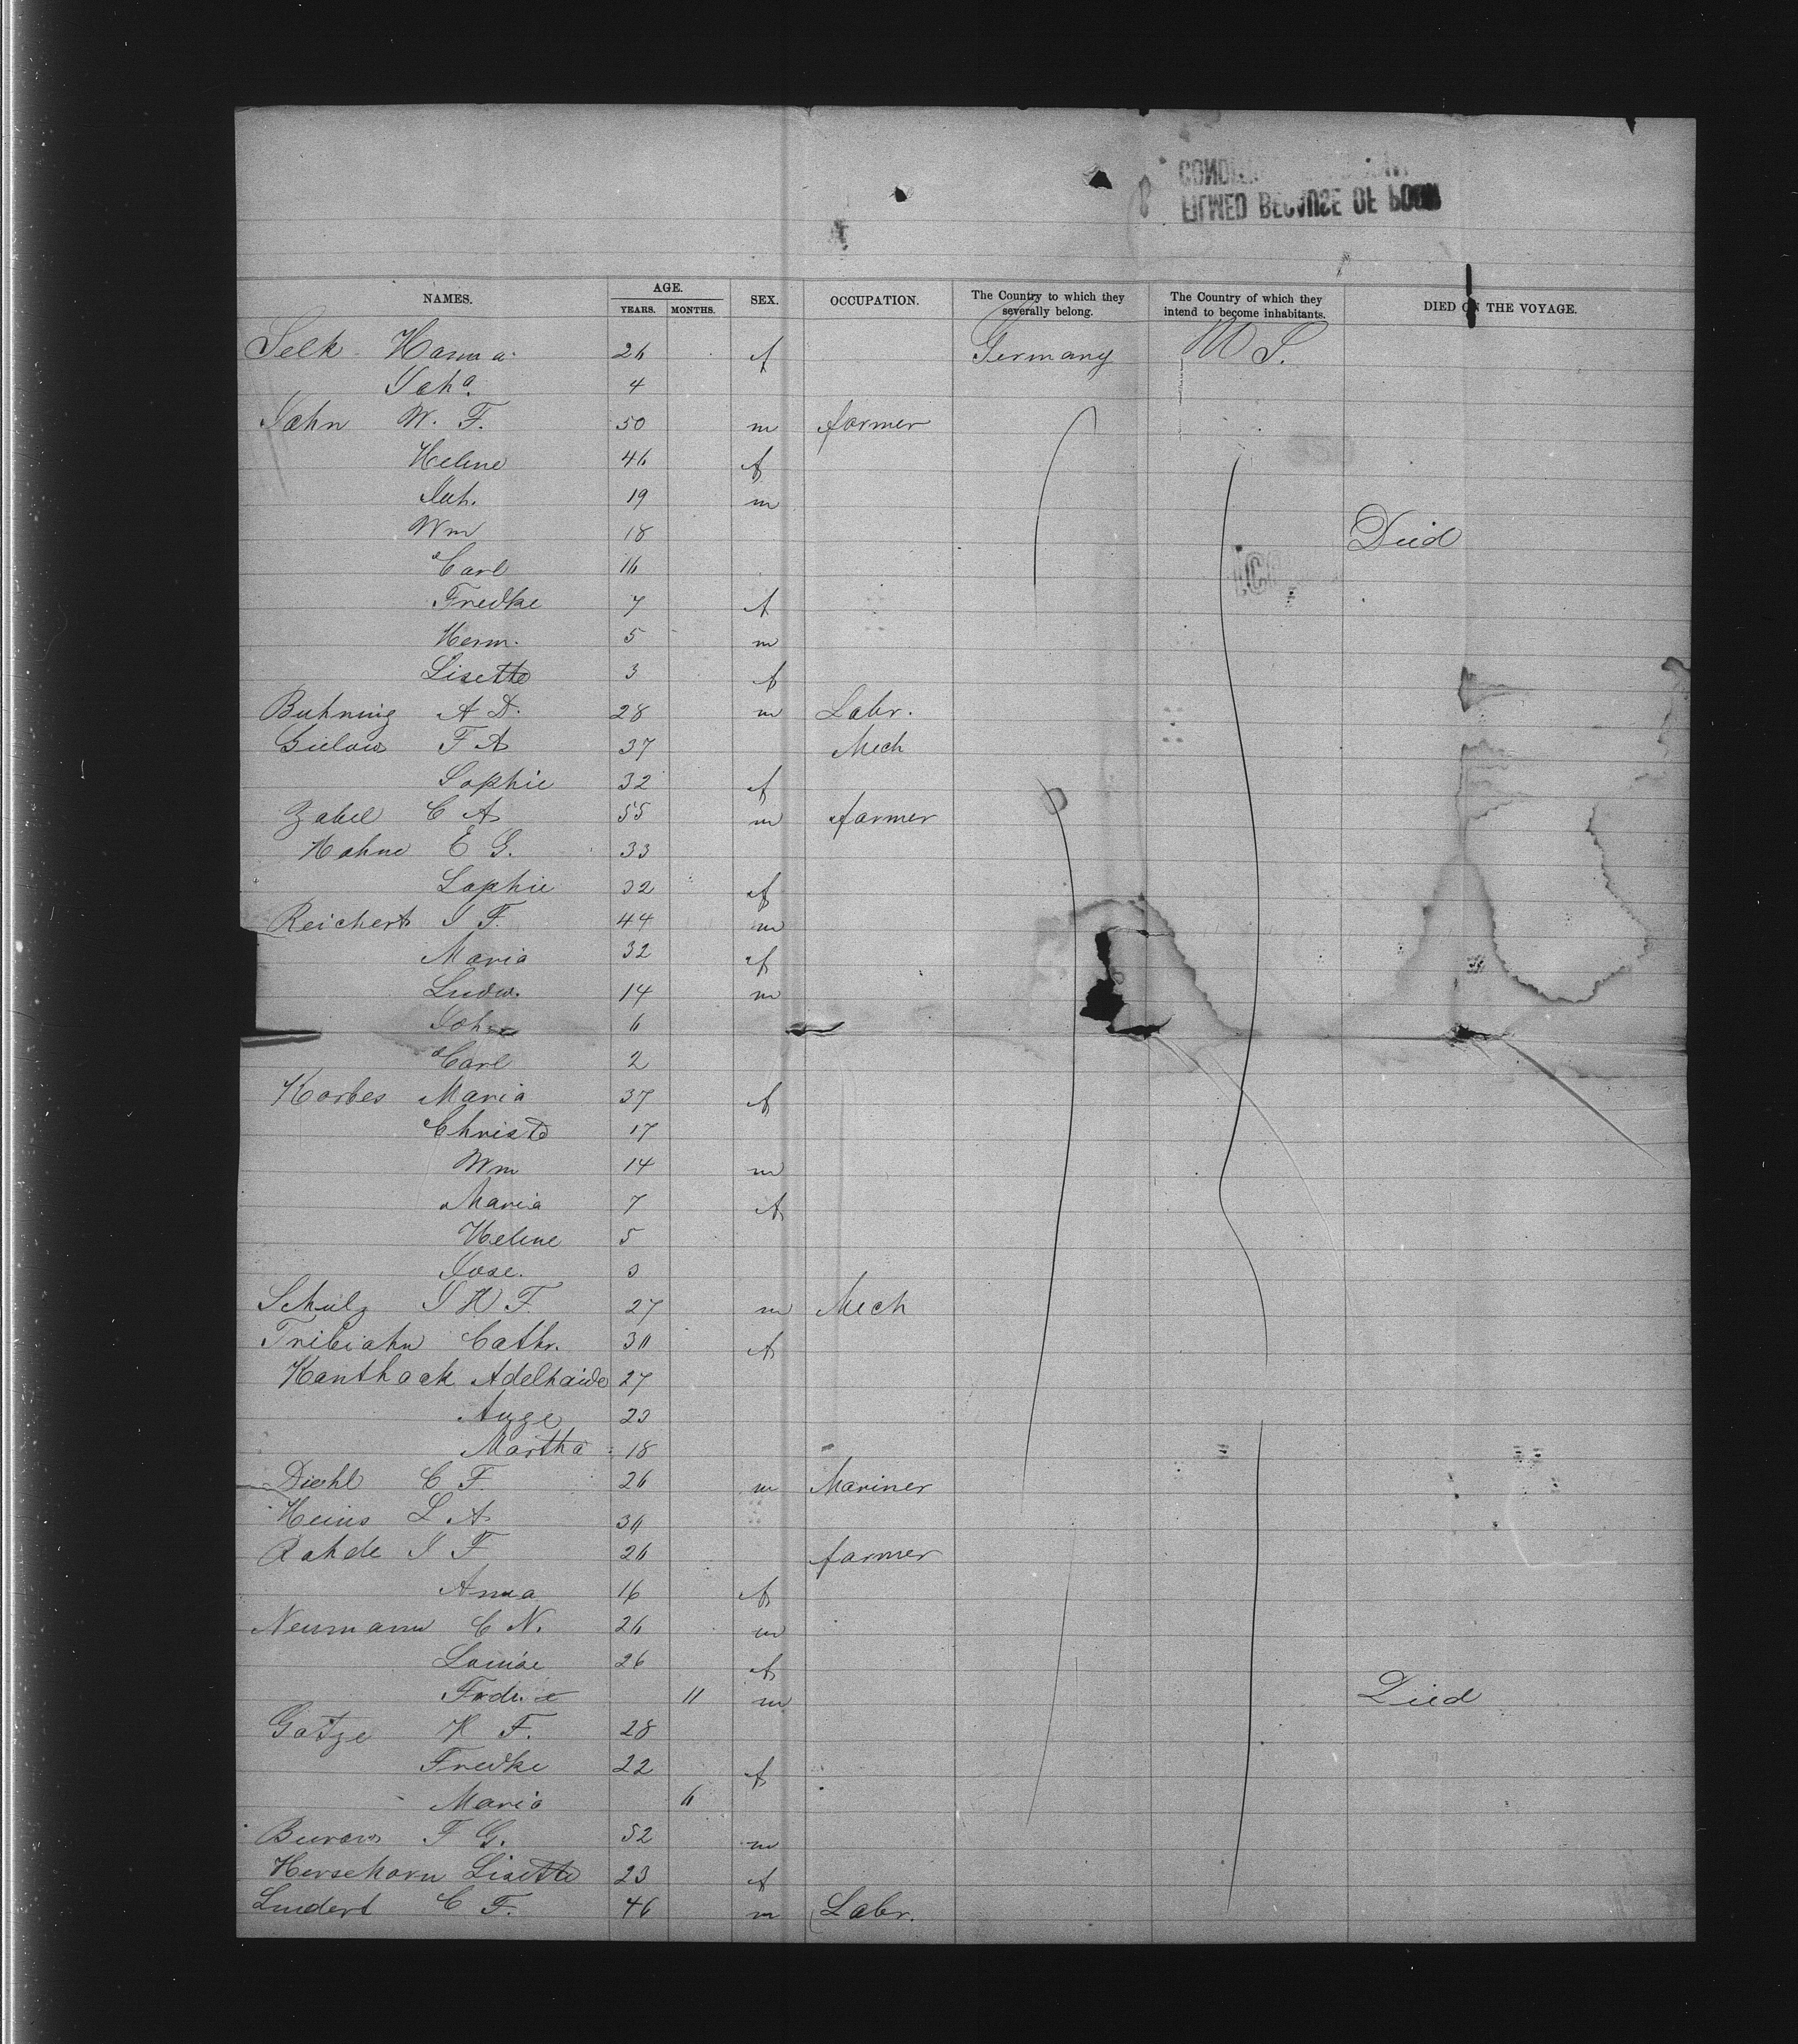 FILMED BECAUSE OF POOR
NAMES. AGE. SEX. OCCUPATION. The Country to which they severally belong. The Country of which they intend to become inhabitants. DIED ON THE VOYAGE.
YEARS. MONTHS.
Selk Hanna 26 f Germany U S.
Joha. 4
Jahn W. F. 50 m farmer
Helene 46 f
Joh. 19 m
Wm 18 Died
Carl 16
Fredke 7 f
Herm. 5 m
Lisette 3 f
Buhning A D. 28 m Labr.
Gulow F A 37 Mech
Sophie 32 f
Zabel C A 55 m farmer
Hahne E G. 33
Sophie 32 f
Reichert J F. 44 m
Maria 32 f
Ludw. 14 m
John 6
Carl 2
Korbes Maria 37 f
Christe 17
Wm 14 m
Maria 7 f
Helene 5
Jose. 3
Schulz J H F. 27 m Mech
Tribiahn Cathr. 30 f
Kanthack Adelhaide 27
Auge 23
Martha 18
Diehl C F. 26 m Mariner
Heins L A 30
Rohde J F 26 farmer
Anna 16 f
Neumann C N. 26 m
Louise 26 f
Fredr. 11 m Died
Gotze H F. 28
Fredke 22 f
Maria 6
Burow F G. 52 m
Hersehorn Lisette 23 f
Lindert C F. 46 m Labr.